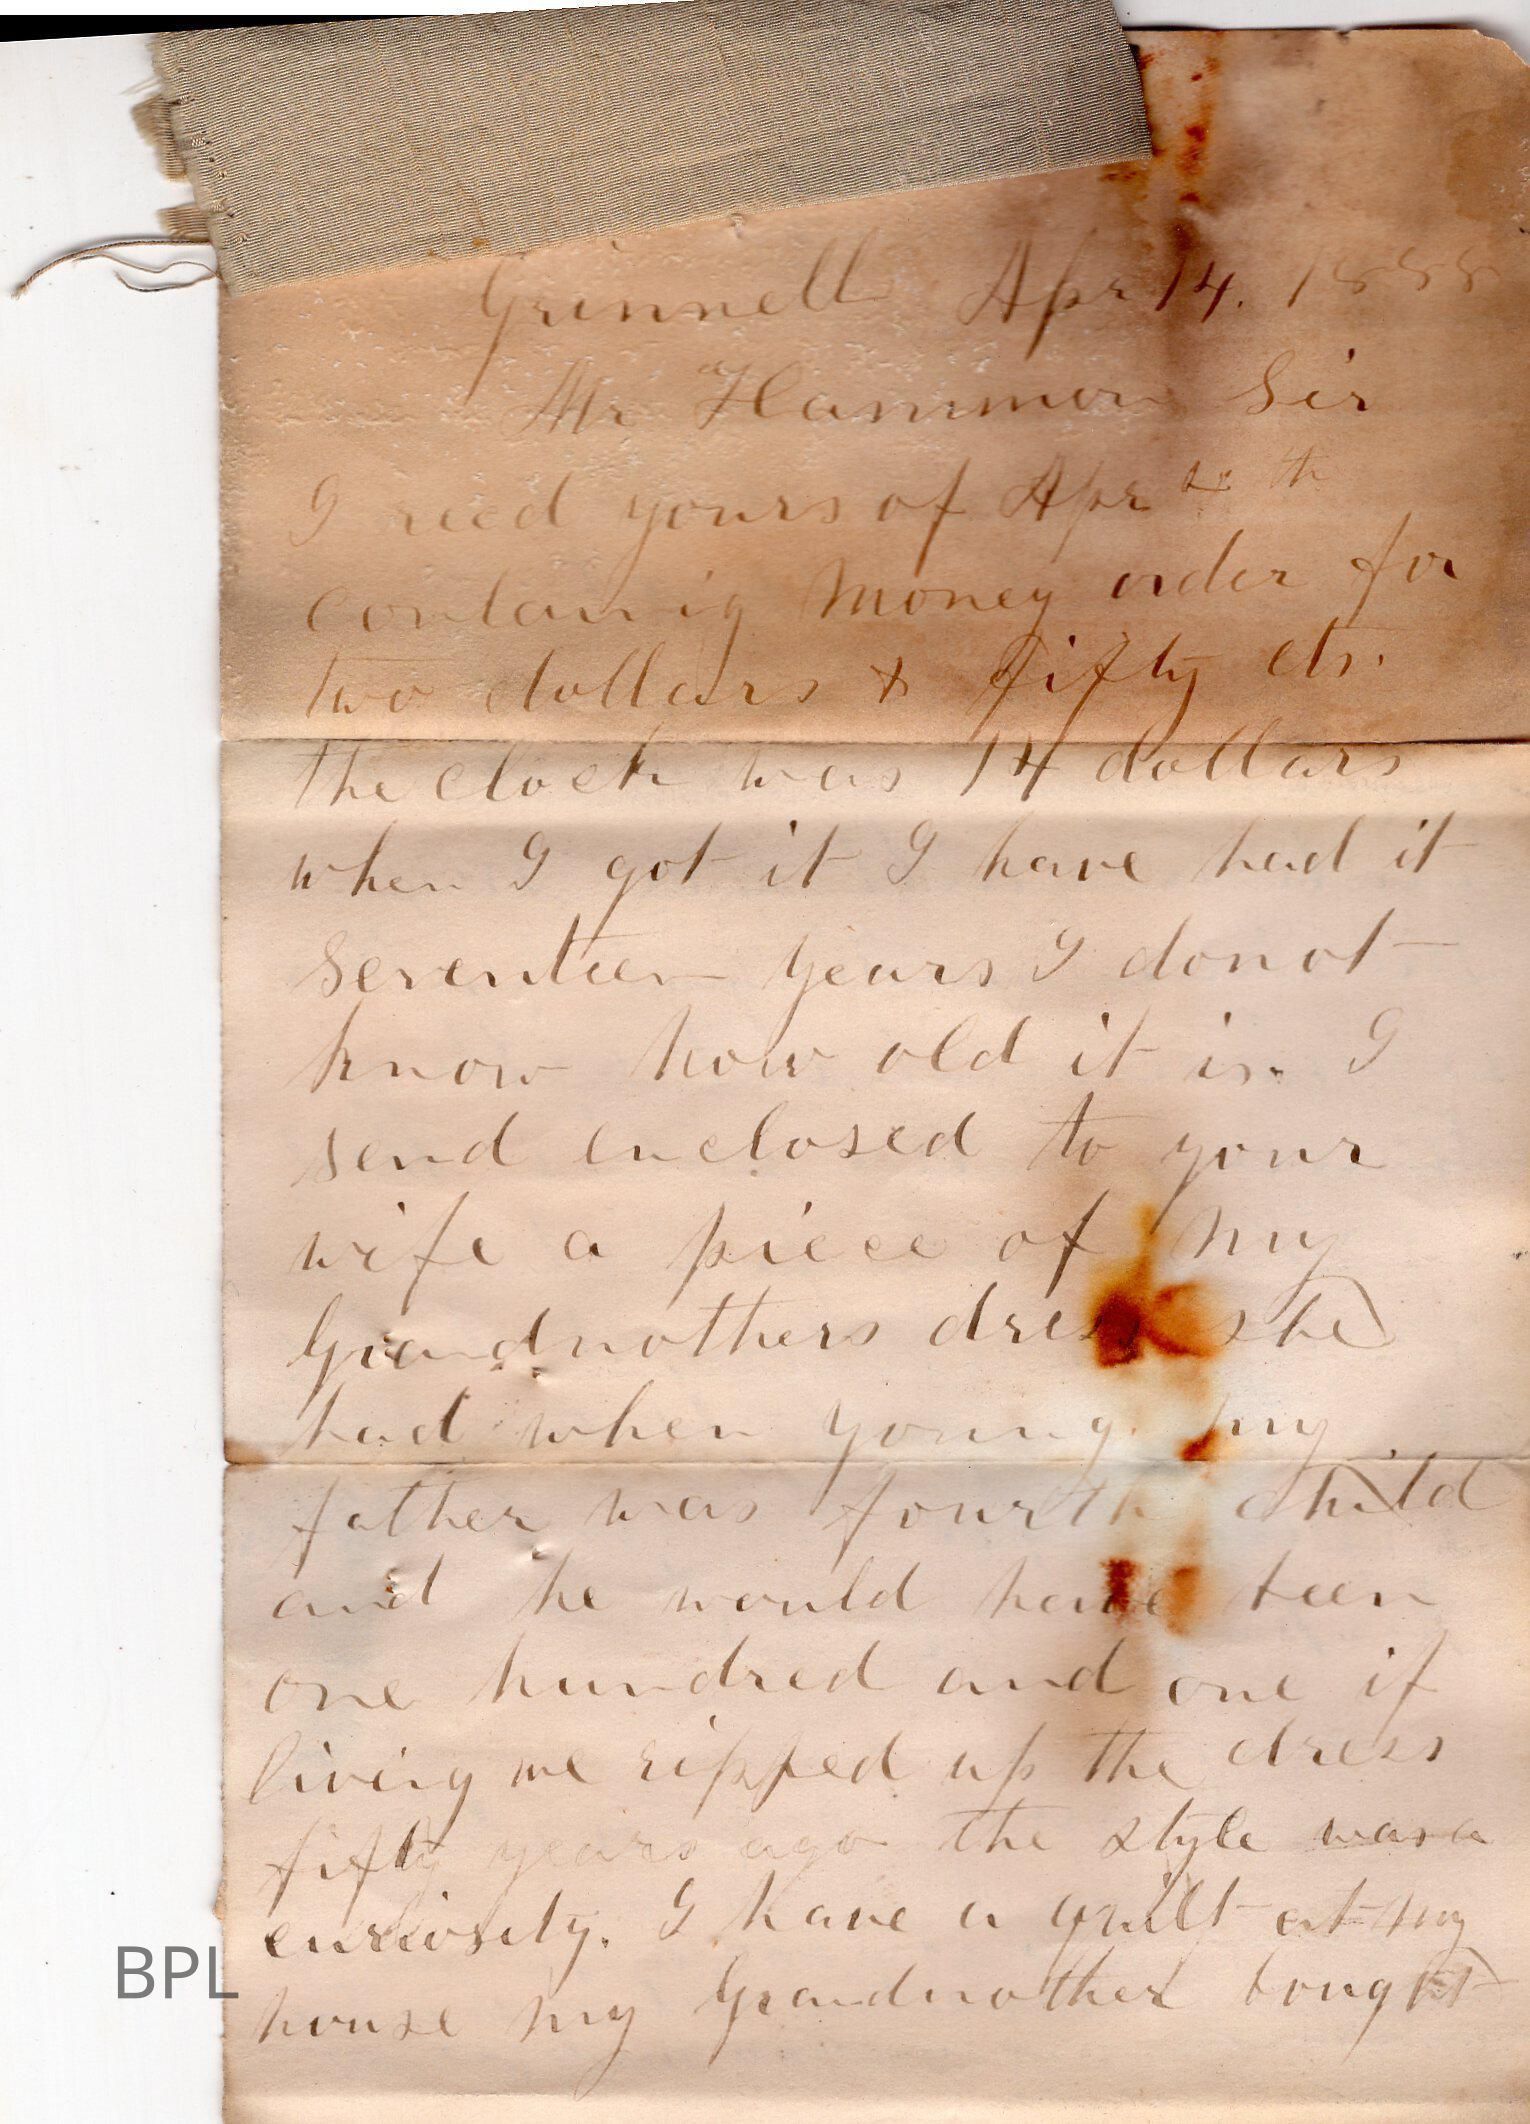 Grinnell Apr 14. 1888
Mr Hammon Sir
I recd yours of Apr th
containig Money order for
two dollars & fifty cts.
the clock was 14 dollars
when I got it I have had it
Seventeen years I donot
know how old it is. I
send enclosed to your
wife a piece of my
Grandmothers dress she
had when young. my
father was fourth child
and he would have been
one hundred and one if
living we ripped up the dress
fifty years ago the style was a
curiosity. I have a quilt at my
house my Grandmother bought
BPL